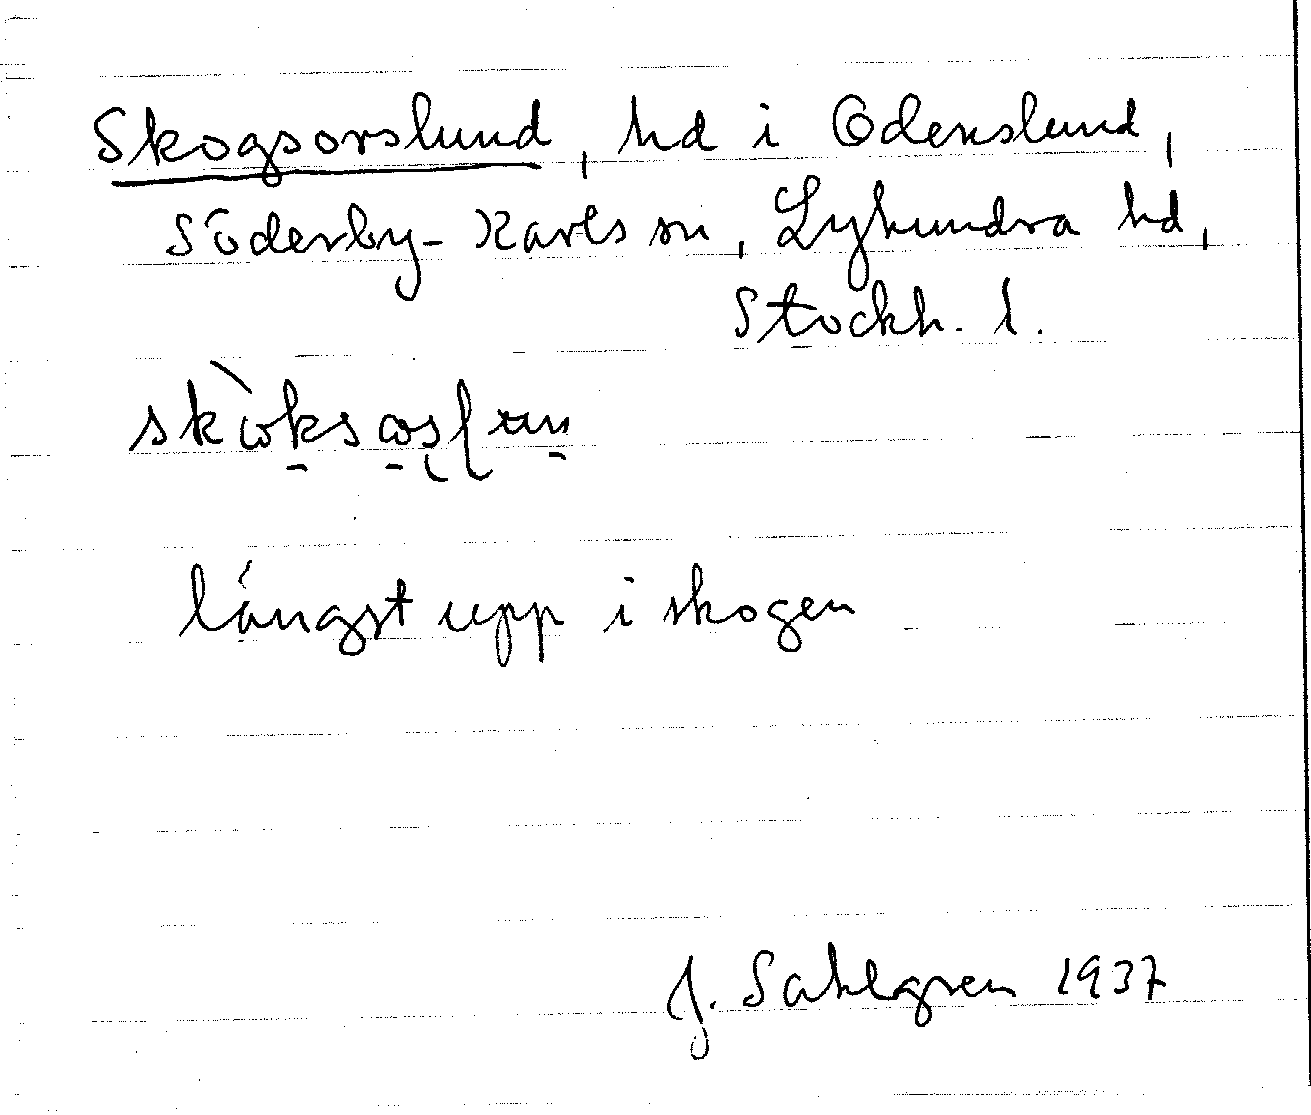 Skogsorslund, hd i Odenslund,
Söderby-Karls sn, Lyhundra hd,
Stockh. l.
längst upp i skogen
J. Sahlgren 1937